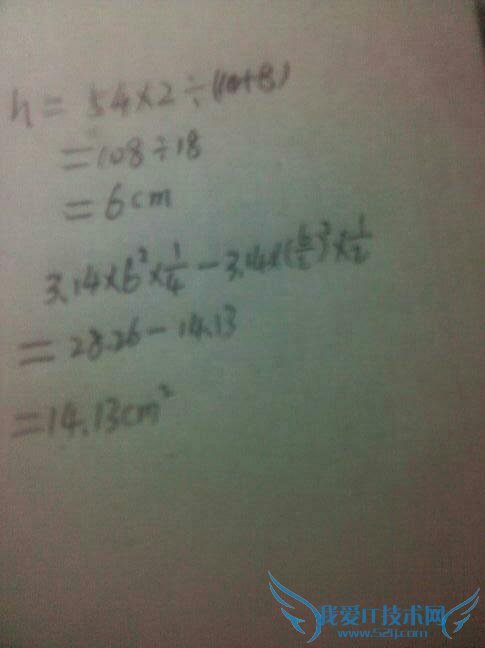 h = 54×2÷(10+8)
=108÷18
=6cm
3.14×6²×1/4-3.14×(6/2)²×1/2
=28.26-14.13
=14.13cm²
我爱IT技术网
www.52ij.com